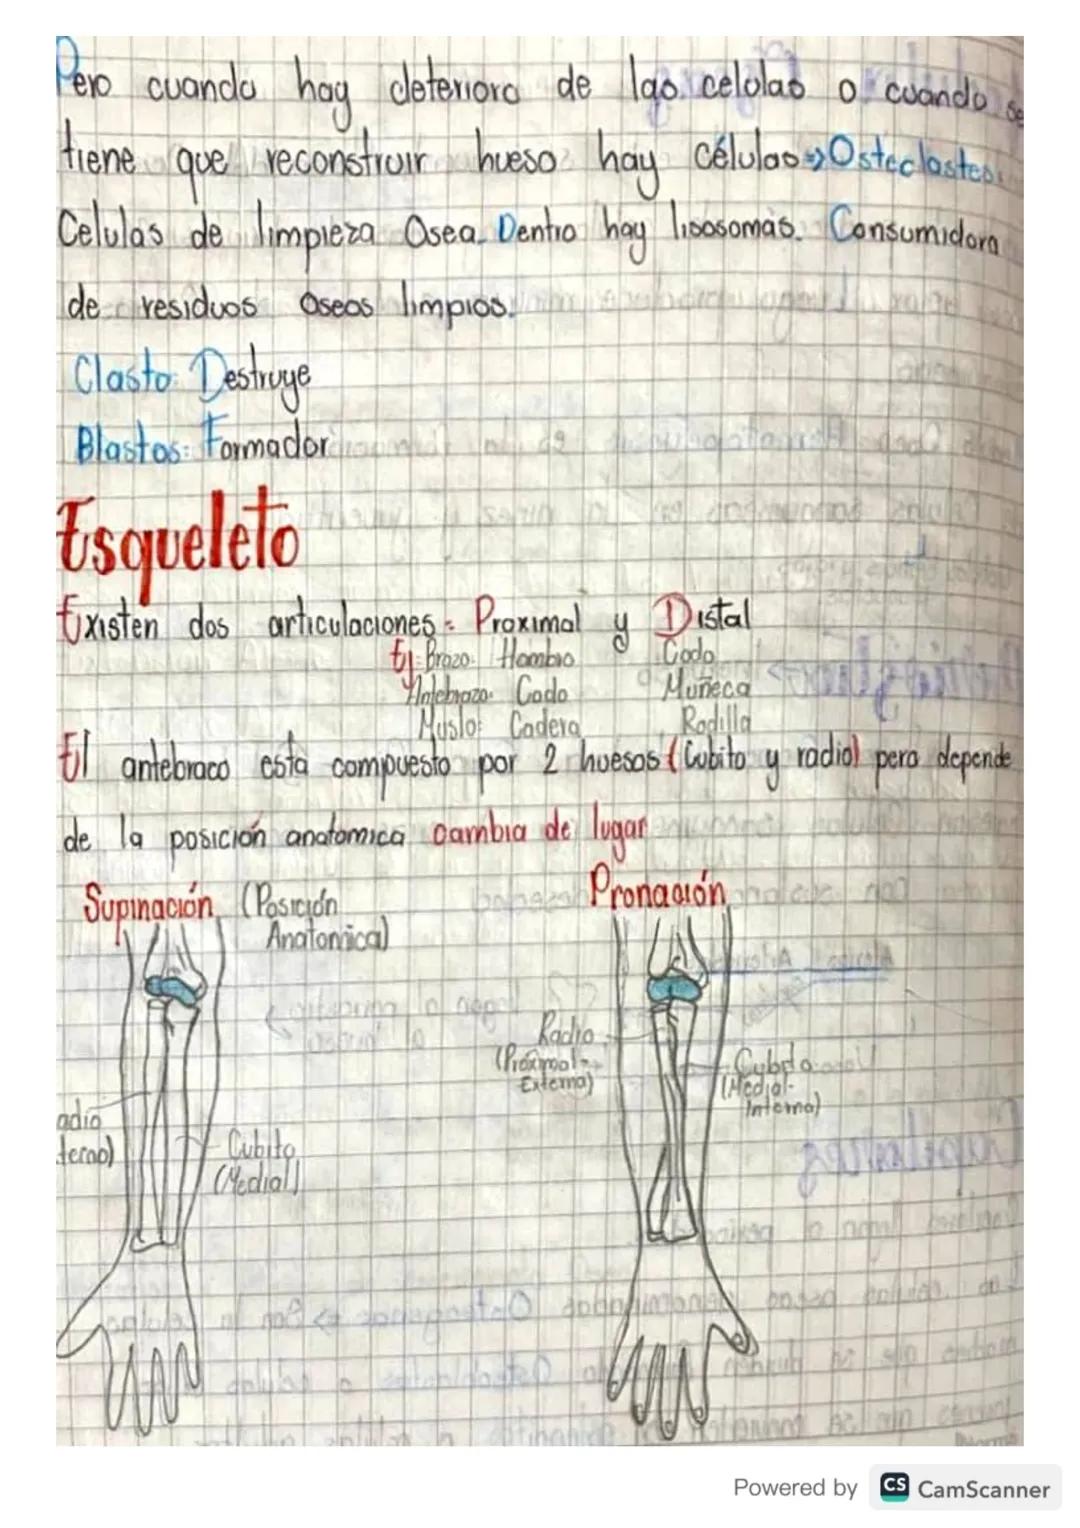 Pero cuando hay deterioro de las celulas o cuando se
tiene que reconstruir hueso hay células → Osteclastos.
Celulas de limpieza Osea. Dentro hay lisosomas. Consumidora
de residuos oseos limpios.
Clasto: Destruye
Blastos: Formador
Esqueleto
Existen dos articulaciones: Proximal y Distal
Ej: Brazo: Hombro Codo
Antebrazo: Codo Muñeca
Muslo: Cadera Rodilla
El antebraco esta compuesto por 2 huesos (Cubito y radio) pero depende
de la posición anatomica cambia de lugar
Supinación (Posición
Anatomica)
Pronación
Radio
(Proximal-
Externa)
Cubito
(Medial-
Interna)
adio
terno)
Cubito
(Medial)
Powered by CS CamScanner